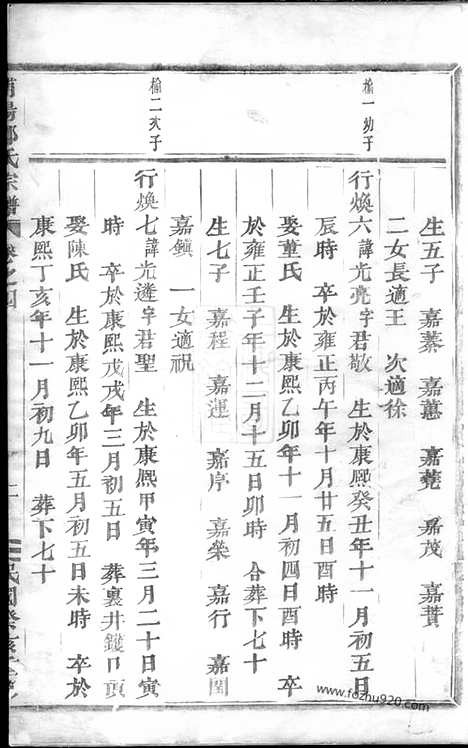 生五子 嘉蓁 嘉蕙 嘉蕘 嘉茂 嘉蕡
二女長適王 次適徐
榆一幼子
行煥六諱光亮字君敬 生於康熙癸丑年十一月初五日
辰時 卒於雍正丙午年十月廿五日酉時
娶董氏 生於康熙乙卯年十一月初四日酉時 卒
於雍正壬子年十二月十五日卯時 合葬下七十
生七子 嘉程 嘉運 嘉序 嘉榮 嘉行 嘉閏
嘉鎮 一女適祝
榆二次子
行煥七諱光遴字君聖 生於康熙甲寅年三月二十日寅
時 卒於康熙戊戌年三月初五日 葬裏井鑊口頂
娶陳氏 生於康熙乙卯年五月初五日未時 卒於
康熙丁亥年十一月初九日 葬下七十
浦陽 氏宗譜 卷之四
民國癸亥
www.fozhu920.com